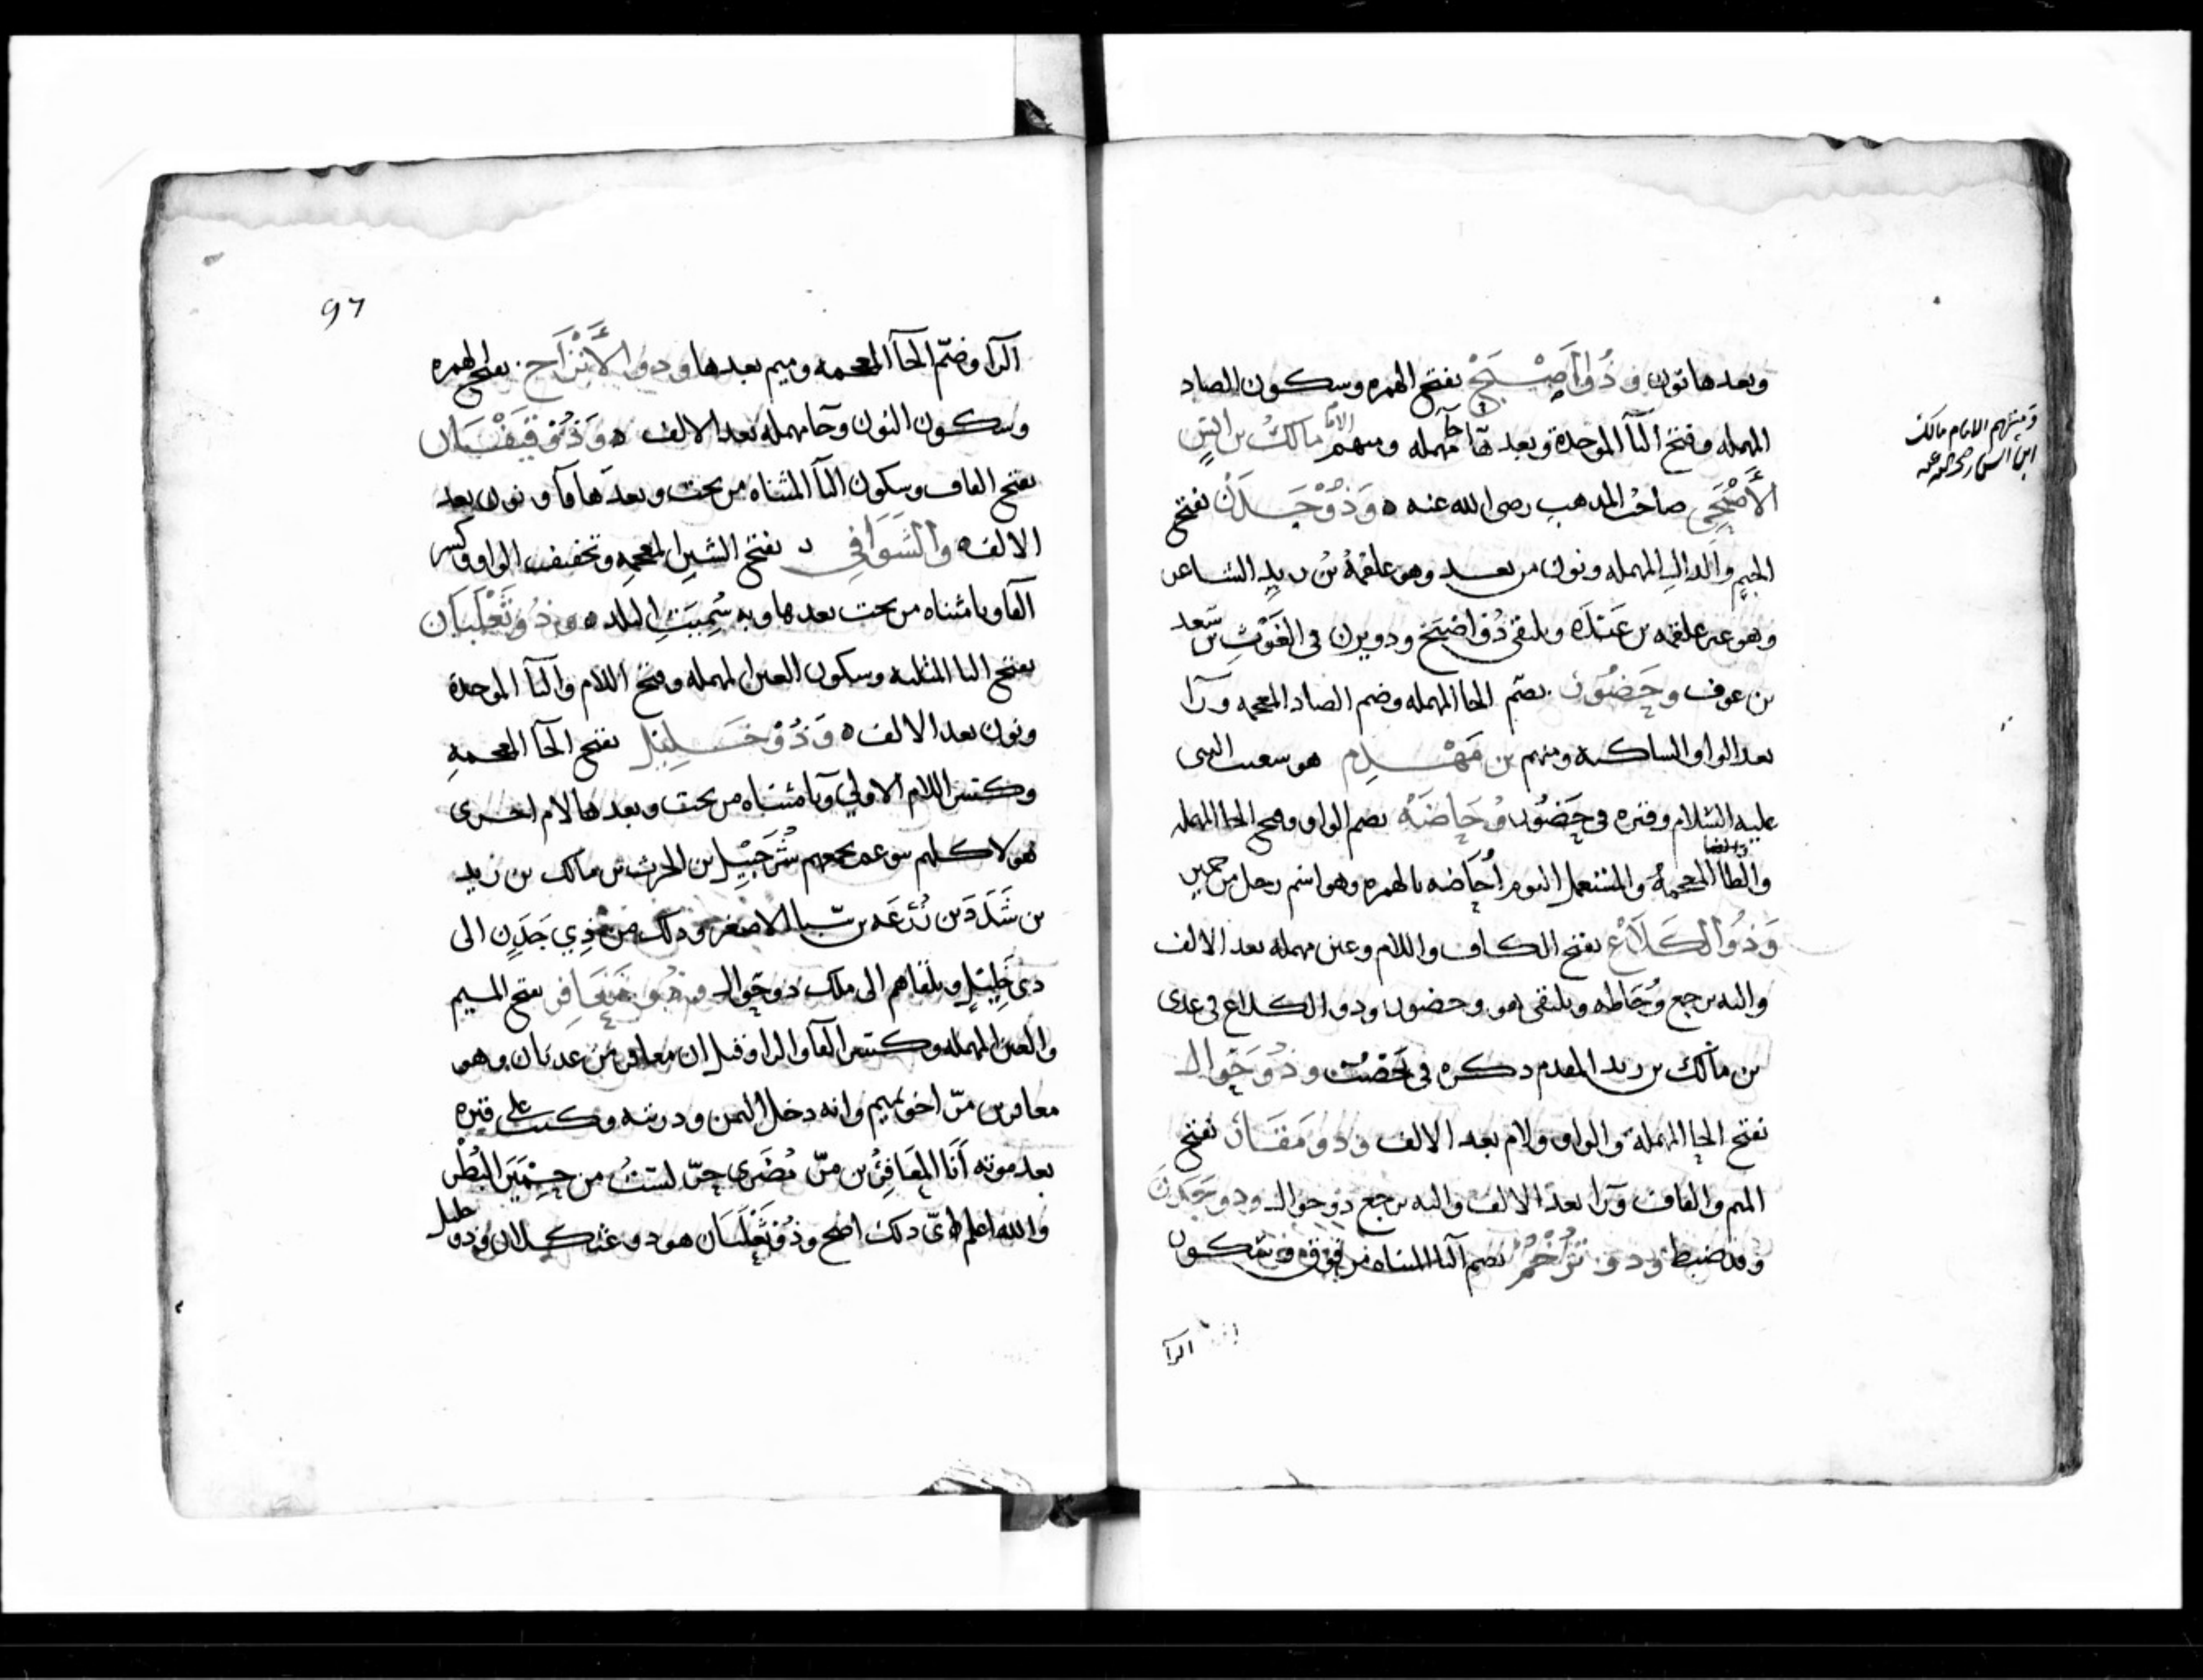 وبعدها نون وذُو أَصْبَحْ بفتح الهمزه وسكون الصاد
المهمله وفتح البآ الموحدة وبعدها حا مهمله ومنهم الامام مالك بن انس
الأَصْبَحِي صاحب المذهب رضى الله عنه ه وَذُوْ جَدَنْ بفتح
الجيم والدال المهمله ونون من بعد وهو علقمة بن زيد الشاعر
وهو غير علقمه بن عبدة ويلتقى ذو اصبح وذو يزن في الغَوْثِ بن سَعد
بن عوف وحَضُوْر بضم الحا المهمله وضم الضاد المعجمه ورآ
بعد الواو الساكنه ومنهم بن مَهْدم هو شعيب النبى
عليه السلام وقبره في حَضُور وُحَاضَهْ بضم الواو وفتح الحا المهمله
والظا المعجمة والمستعمل اليوم أُحاضه بالهمزه وهو اسم رجل من حمير
وَذُو الكَلَاعْ بفتح الكاف واللام وعين مهمله بعد الالف
واليه يرجع وُحَاظه ويلتقى هو وحضور وذو الكلاع في عدى
بن مالك بن زيد المقدم ذكره في يَحْصُبْ وذُوْ حَوَال
بفتح الحا المهمله والواو ولام بعد الالف وذو مَقَار بفتح
الميم والقاف ورا بعد الالف واليه يرجع ذو حوال وذو جَدَن
وقد ضبط وذو تُرْخُمْ بضم التا المثناه من فوق وسكون
الرآ
ومنهم الامام مالك
ابن انس رضى الله عنه
97
الرآ وضم الخآ المعجمه وميم بعدها وذو الأَنْزَاح بفتح الهمزه
وسكون النون وحا مهمله بعد الالف ه وَذُوْ قَيْفَان
بفتح القاف وسكون اليآ المثناه من تحت وبعدها فآ ونون بعد
الالف ه والشَوَافِي بفتح الشين المعجمه وتخفيف الواو وكسر
الفا ويا مثناه من تحت بعدها وبه سُمِيَتِ البلد ه وذُوْ ثَعْلَبَان
بفتح الثا المثلثه وسكون العين المهمله وفتح اللام والبآ الموحدة
ونون بعد الالف ه وَذُوْ خَلِيْل بفتح الخآ المعجمةِ
وكسر اللام الاولي ويا مثناه من تحت وبعدها لام اخرى
هولا كلهم بنو عم يجمعهم شُرَحْبِيْل بن الحرث بن مالك بن زيد
بن شَدَدَ بن زُرْعَه بن سبا الاصغر وذلك من ذِي جَدَنٍ الى
ذى خَلِيْلٍ ويلقاهم الى ملك ذو حَوال مَعَافِر بفتح الميم
والعين المهمله وكسر الفآ والرا وقيل ان معافر من عدنان وهو
معافر بن مرّ اخو تميم وانه دخل اليمن وذريته وكتب على قبره
بعد موته أَنَا المعَافِرُ بن مرّ مُضَرى حرّ لستُ من حِمْيَرَ البُطْر
والله اعلم اىّ ذلك اصح وذُو ثَعْلَبَان هو ذو عثكلان وذو خليل